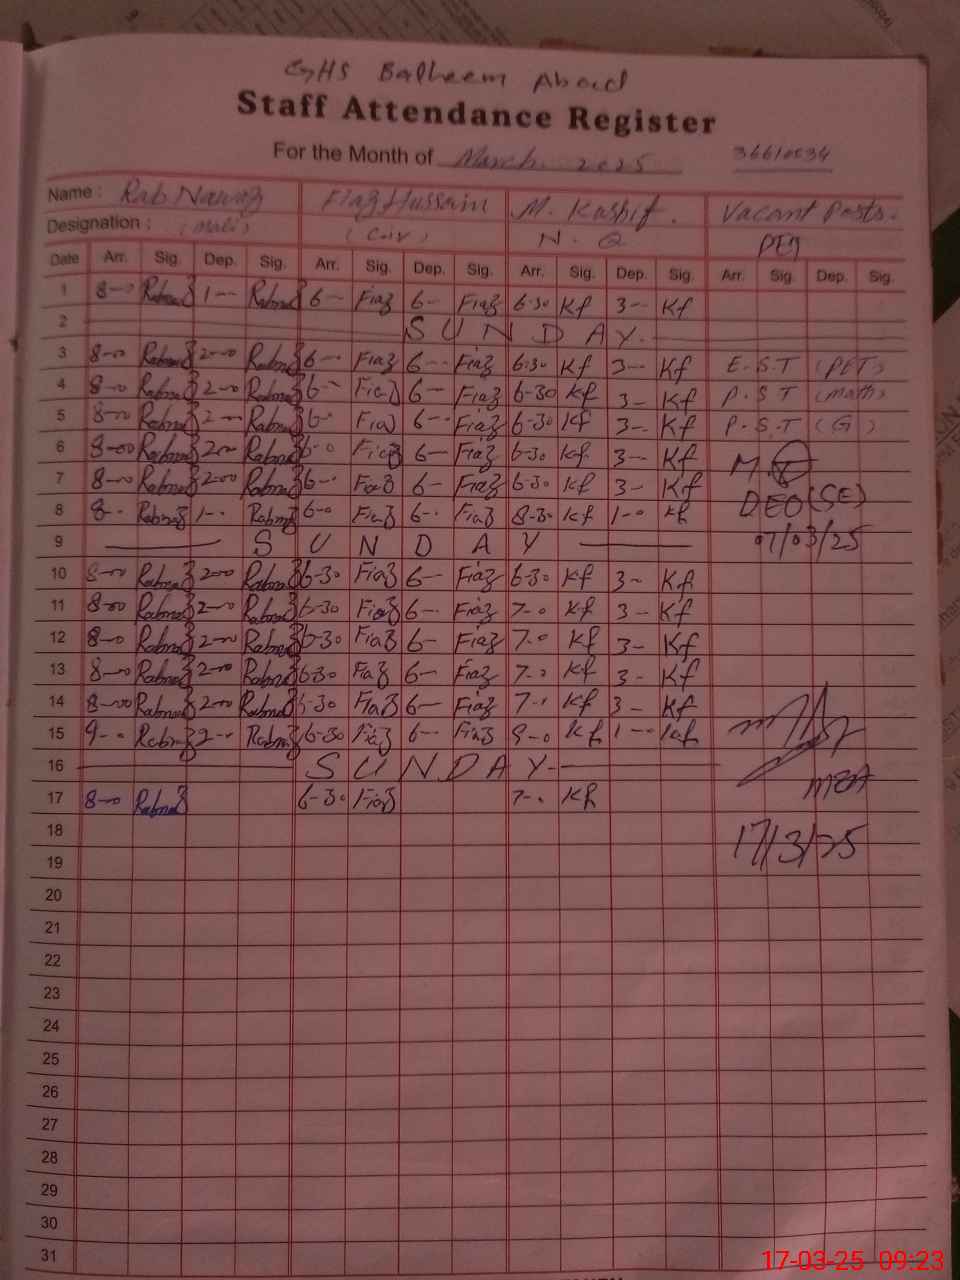 GHS Balheem Abad
Staff Attendance Register
For the Month of March 2025 36610034
Name : Rab Nawaz Fiaz Hussain M. Kashif. Vacant Posts.
Designation : (mali) N. Q
Date Arr. Sig. Dep. Sig. Arr. Sig. Dep. Sig. Arr. Sig. Dep. Sig. Arr. Sig. Dep. Sig.
1 8-00 Rabnaz 1-- Rabnaz 6-- Fiaz 6- Fiaz 6-30 Kf 3-- Kf
2 SUNDAY.
3 8-00 Rabnaz 2-00 Rabnaz 6-- Fiaz 6-- Fiaz 6-30 Kf 3-- Kf E.S.T (PET)
4 8-00 Rabnaz 2-00 Rabnaz 6- Fiaz 6- Fiaz 6-30 Kf 3- Kf P.S.T (math)
5 8-00 Rabnaz 2-- Rabnaz 6-- Fiaz 6-- Fiaz 6-30 Kf 3-- Kf P.S.T (G)
6 8-00 Rabnaz 2-00 Rabnaz 6-0 Fiaz 6- Fiaz 6-30 Kf 3-- Kf
7 8-00 Rabnaz 2-00 Rabnaz 6-- Fiaz 6- Fiaz 6-30 Kf 3- Kf DEO (SE)
8 8-- Rabnaz 1-- Rabnaz 6-0 Fiaz 6-- Fiaz 8-30 Kf 1-0 Kf
9 SUNDAY 07/03/25
10 8-00 Rabnaz 2-00 Rabnaz 6-30 Fiaz 6- Fiaz 6-30 Kf 3- Kf
11 8-00 Rabnaz 2-00 Rabnaz 6-30 Fiaz 6-- Fiaz 7-0 Kf 3-- Kf
12 8-0 Rabnaz 2-00 Rabnaz 6-30 Fiaz 6- Fiaz 7-0 Kf 3- Kf
13 8-0 Rabnaz 2-00 Rabnaz 6-30 Fiaz 6-- Fiaz 7-0 Kf 3- Kf
14 8-00 Rabnaz 2-00 Rabnaz 6-30 Fiaz 6- Fiaz 7-0 Kf 3- Kf
15 9-0 Rabnaz 2-- Rabnaz 6-30 Fiaz 6-- Fiaz 9-0 Kf 1-- Kf
16 SUNDAY-
17 8-00 Rabnaz 6-30 Fiaz 7-0 Kf
18 17/3/25
19
20
21
22
23
24
25
26
27
28
29
30
31
17-03-25 09:23